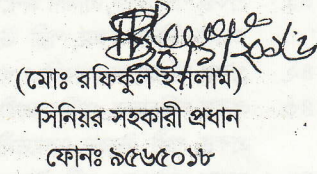 ২০/১/২০১৫
(মোঃ রফিকুল ইসলাম)
সিনিয়র সহকারী প্রধান
ফোনঃ ৯৫৬৫০১৮